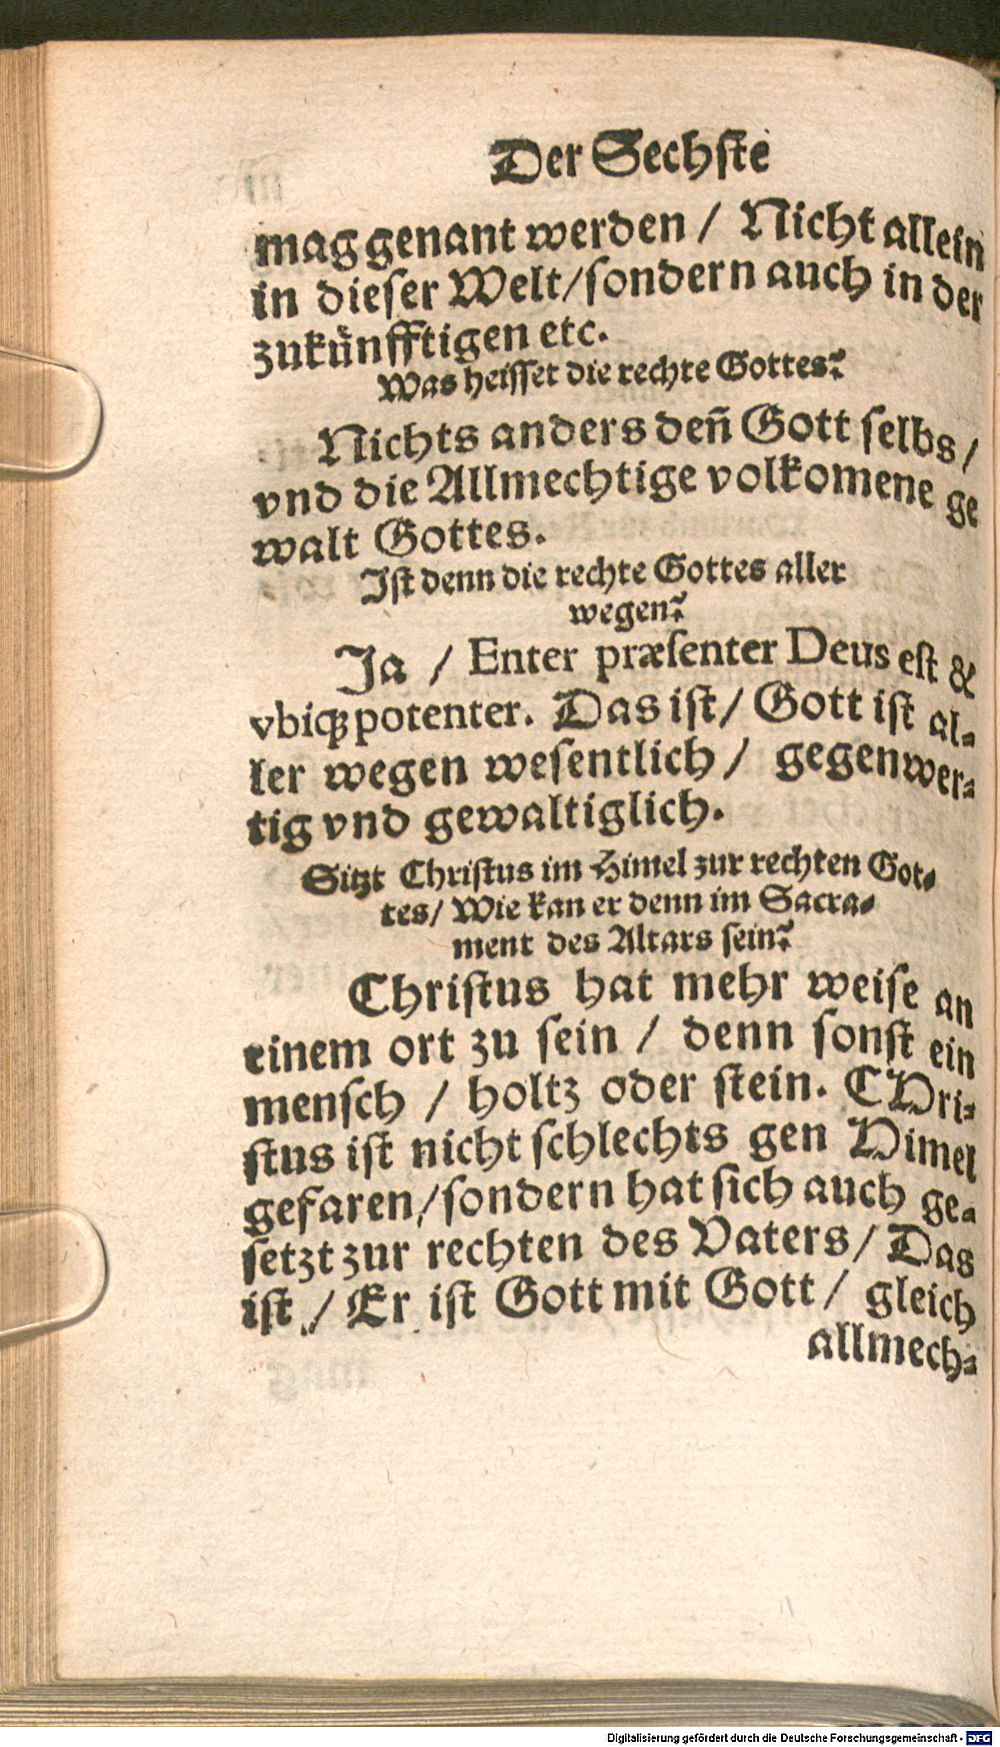 Der Sechste
mag genant werden / Nicht allein
in dieser Welt / sondern auch in der
zukünfftigen etc.
Was heisset die rechte Gottes?
Nichts anders den̄ Gott selbs /
vnd die Allmechtige volkomene ge
walt Gottes.
Ist denn die rechte Gottes aller
wegen?
Ja / Enter præsenter Deus est &
vbiqꝫ potenter. Das ist / Gott ist al-
ler wegen wesentlich / gegenwer-
tig vnd gewaltiglich.
Sitzt Christus im Himel zur rechten Got-
tes / Wie kan er denn im Sacra-
ment des Altars sein?
Christus hat mehr weise an
einem ort zu sein / denn sonst ein
mensch / holtz oder stein. CHri-
stus ist nicht schlechts gen Himel
gefaren / sondern hat sich auch ge-
setzt zur rechten des Vaters / Das
ist / Er ist Gott mit Gott / gleich
allmech-
Digitalisierung gefördert durch die Deutsche Forschungsgemeinschaft - DFG